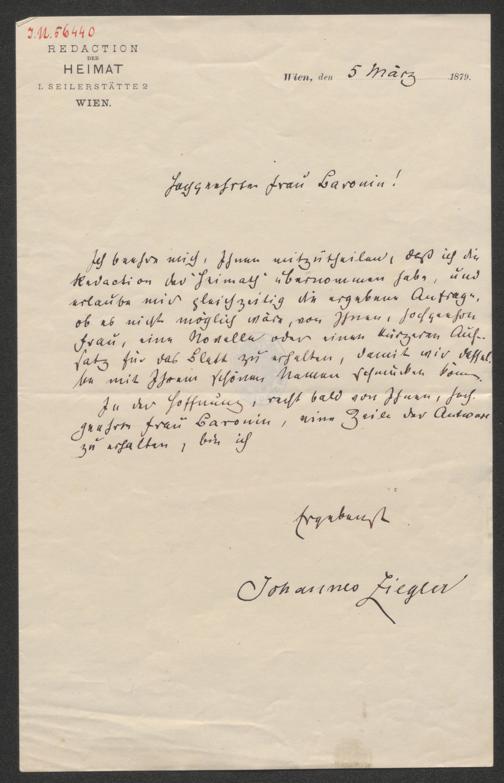 I.N. 56440
REDACTION
DER
HEIMAT
I. SEILERSTÄTTE 2
WIEN.
Wien, den 5 März 1879.
Hochgeehrte Frau Baronin!
Ich beehre mich, Ihnen mitzutheilen, daß ich die
Redaction der "Heimath" übernommen habe, und
erlaube mir gleichzeitig die ergebene Anfrage,
ob es nicht möglich wäre, von Ihnen, hochgeehrte
Frau, eine Novelle oder einen kürzeren Auf-
satz für das Blatt zu erhalten, damit wir dassel-
be mit Ihrem schönen Namen schmücken können.
In der Hoffnung, recht bald von Ihnen, hoch-
geehrte Frau Baronin, eine Zeile der Antwort
zu erhalten, bin ich
Ergebenst
Johannes Ziegler